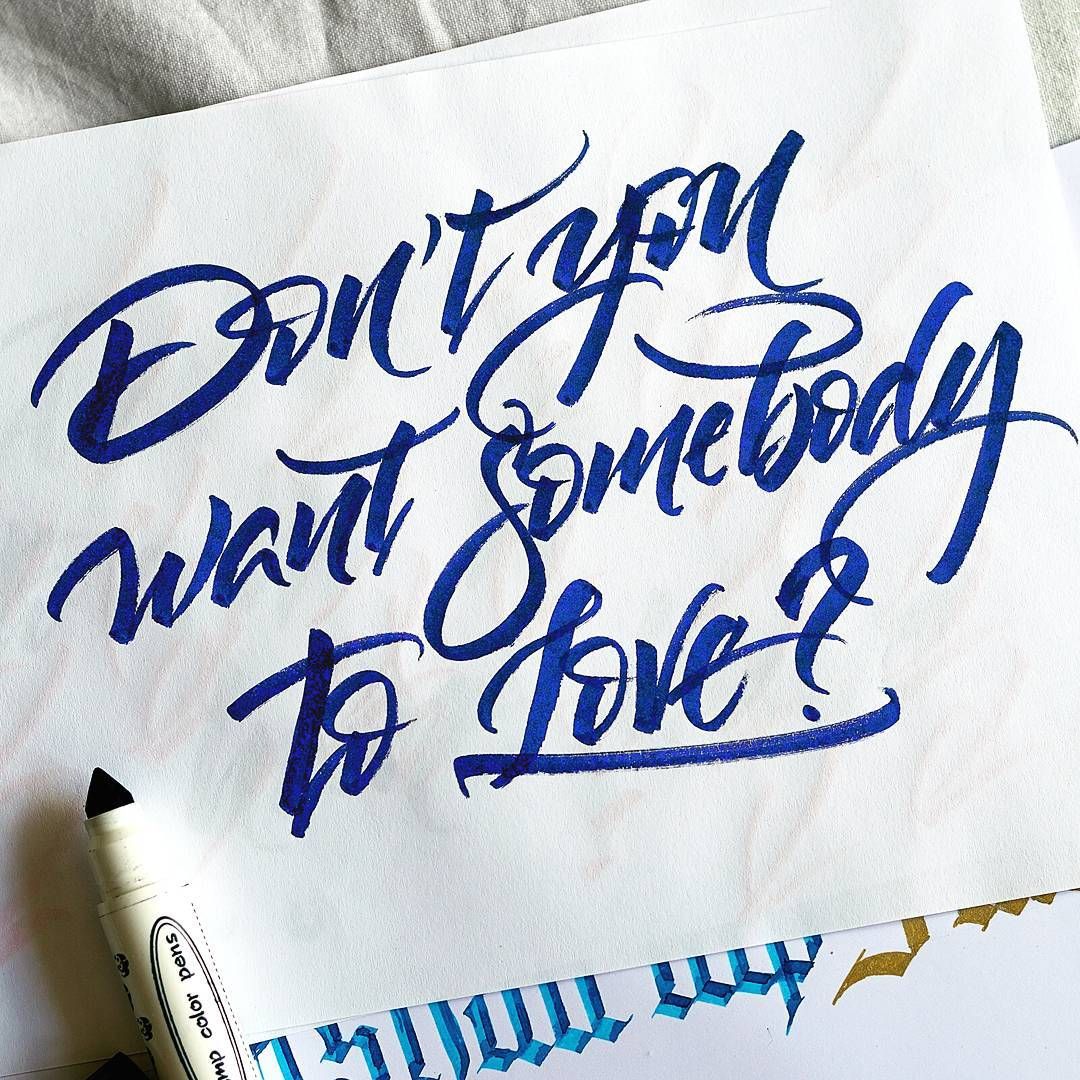 Don't you
want Somebody
to Love?
color pens